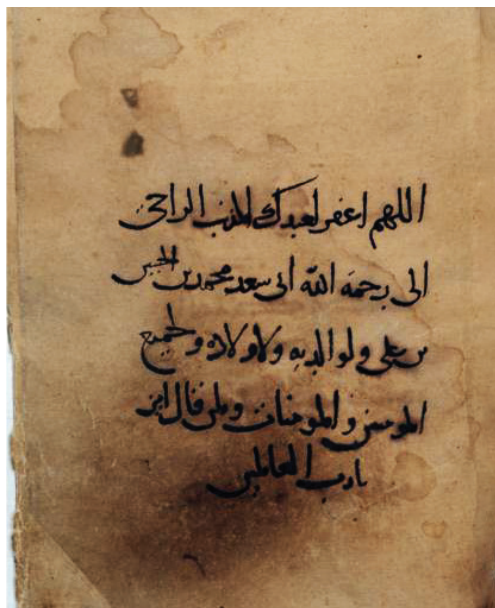 اللهم اغفر لعبدك المذنب الراجى
الى رحمة الله ابى سعد محمد بن الحسين
بن على ولوالديه ولاولاده ولجميع
المومنين والمومنات ولمن قال امين
يا رب العالمين